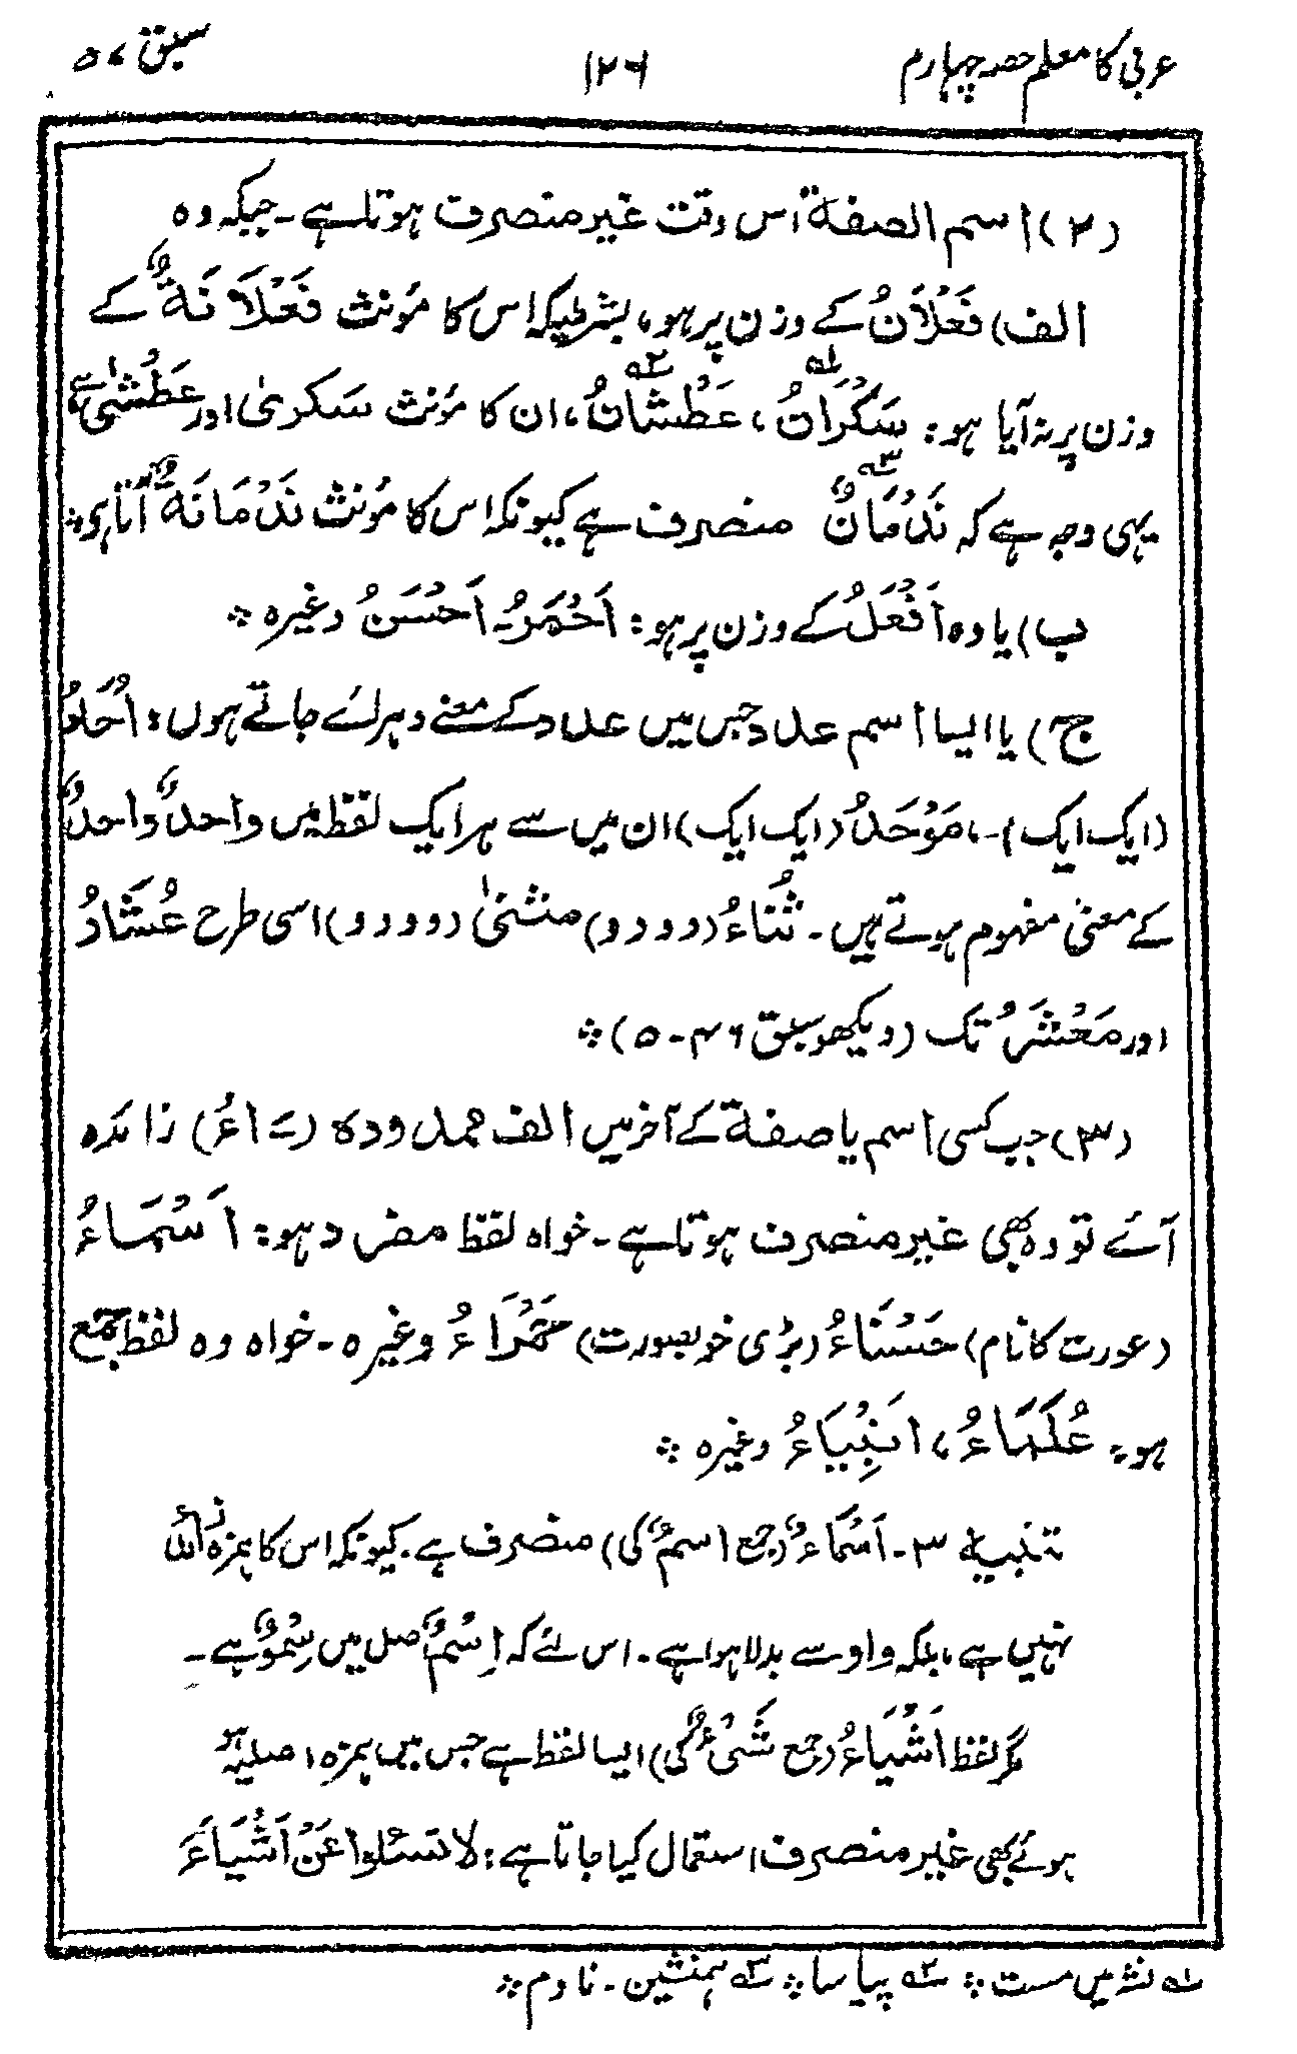 عربی کا معلم حصہ چہارم
۱۲۶
سبق ۵۷
(۲) اسم الصفة اس وقت غیر منصرف ہوتا ہے۔ جبکہ وہ
الف) فَعْلَانُ کے وزن پر ہو، بشرطیکہ اس کا مؤنث فَعْلَانَةٌ کے
وزن پر نہ آیا ہو: سَكْرَانُ ۱؎، عَطْشَانُ ۲؎، ان کا مؤنث سَكریٰ اور عَطْشیٰ ہے
یہی وجہ ہے کہ نَدْمَانٌ ۳؎ منصرف ہے کیونکہ اس کا مؤنث نَدْمَانَةٌ آتا ہے
ب) یا وہ اَفْعَلُ کے وزن پر ہو: اَحْمَرُ۔ اَحْسَنُ وغیرہ
ج) یا ایسا اسم عدد جس میں عدد کے معنے دہرائے جاتے ہوں: اُحَادُ
(ایک ایک)۔، مَوْحَدُ (ایک ایک) ان میں سے ہر ایک لفظ میں واحدٌ واحدٌ
کے معنیٰ مفہوم ہوتے ہیں۔ ثُنَاءُ (دو دو) مثنیٰ (دو دو) اسی طرح عُشَارُ
اور مَعْشَرُ تک (دیکھو سبق ۴۶۔۵)
(۳) جب کسی اسم یا صفة کے آخر میں الف ممدودہ (ـَاءُ) زائدہ
آئے تو وہ بھی غیر منصرف ہوتا ہے۔ خواہ لفظ مفرد ہو: اَسْمَاءُ
(عورت کا نام) حَسْنَاءُ (بڑی خوبصورت) حَمْرَاءُ وغیرہ۔ خواہ وہ لفظ جمع
ہو: عُلَمَاءُ، اَنْبِيَاءُ وغیرہ
تنبیہ ۳۔ اَسْمَاءٌ (جمع اسمٌ کی) منصرف ہے۔ کیونکہ اس کا ہمزہ زائد
نہیں ہے، بلکہ واو سے بدلا ہوا ہے۔ اس لئے کہ اِسْمٌ اصل میں سِمْوٌ ہے۔
مگر لفظ اَشْيَاءُ (جمع شَیْءٌ کی) ایسا لفظ ہے جس میں ہمزہ اصلیہ ہو
ہوتے بھی غیر منصرف استعمال کیا جاتا ہے: لا تسئلوا عَنْ اَشْيَاءَ
۱؎ نشہ میں مست ۲؎ پیاسا ۳؎ ہمنشین۔ نادم